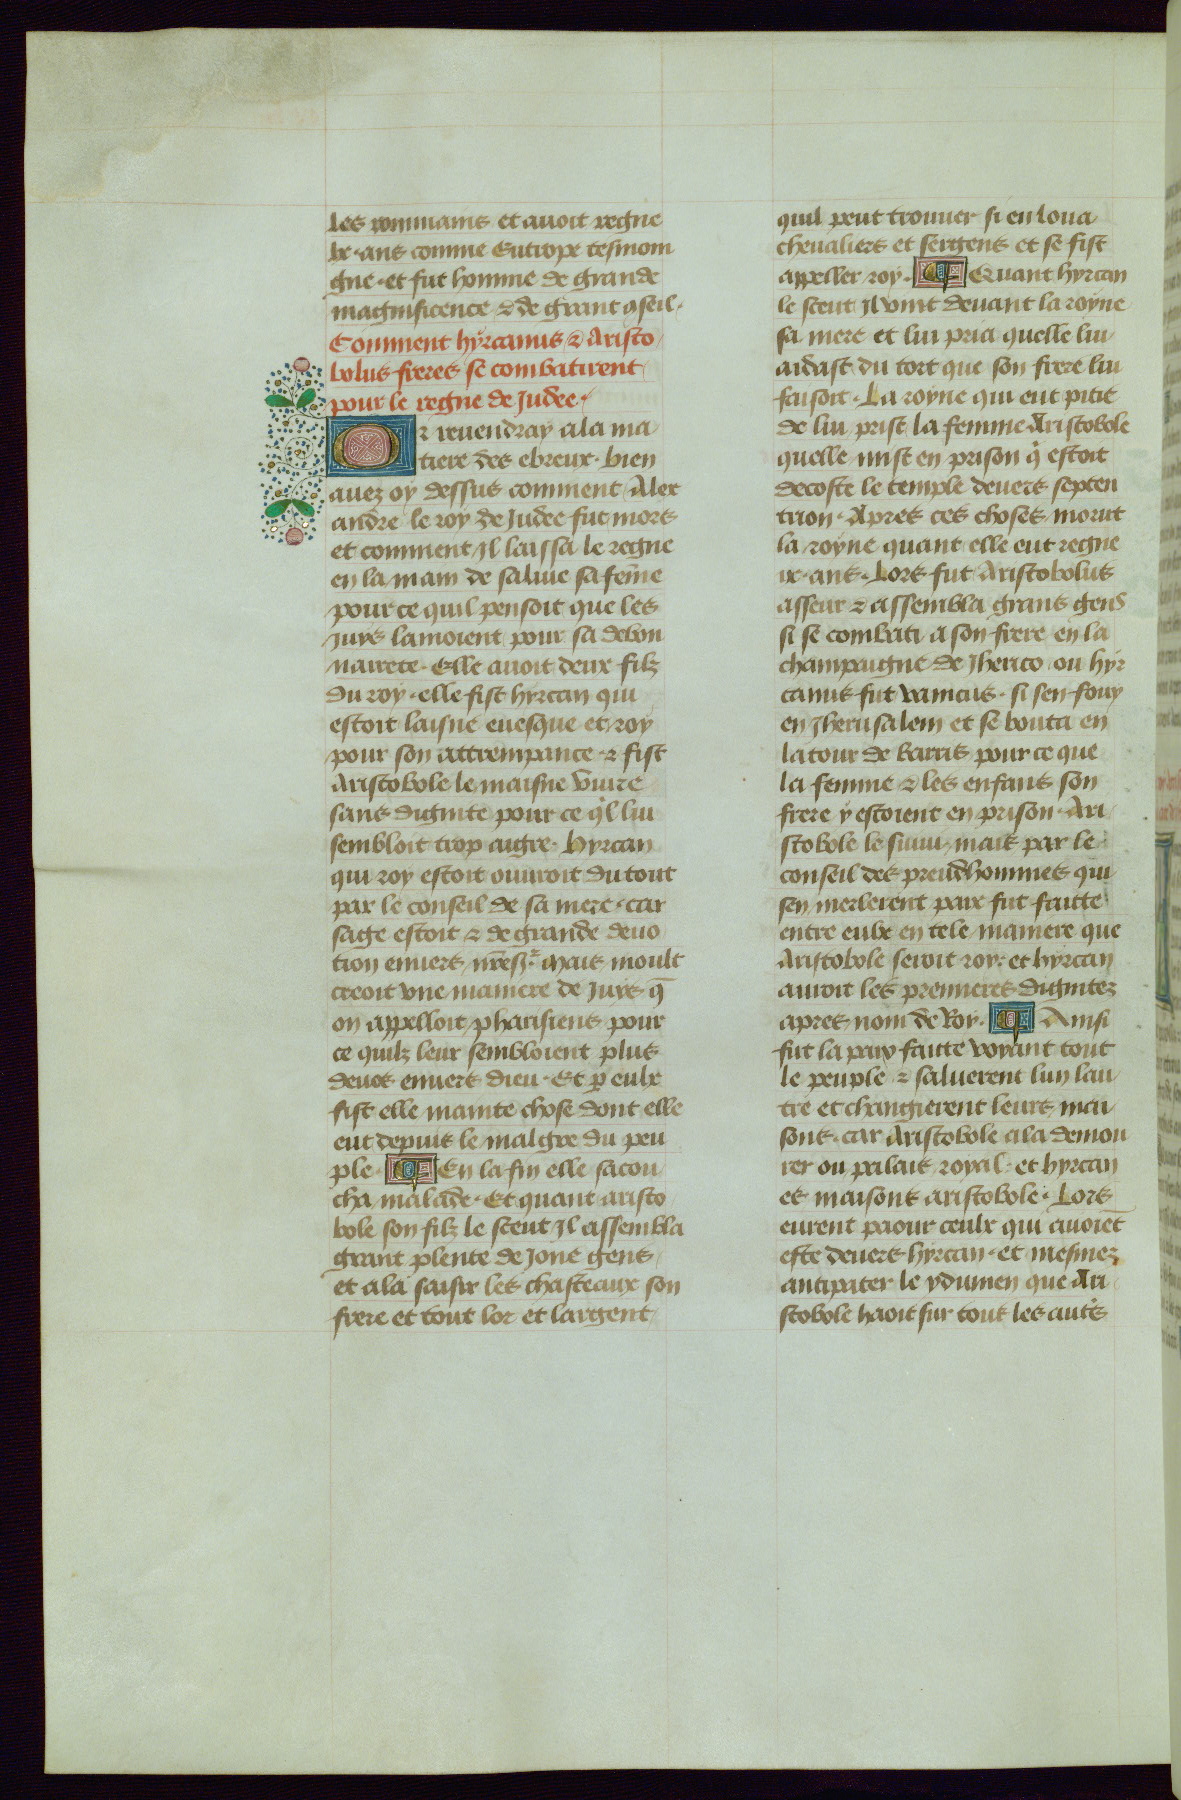 les rommains et auoit regne
lx·ans comme Eutrope tesmoin
gne·et fut homme de grande
magnificence & de grant ɔseil·
Comment hyrcanus & Aristo
bolus freres se combatirent
pour le regne de Judee·
Or reuendray a la ma
tiere des ebreux· bien
auez oy dessus comment Alex
andre le roy de Judee fut mors
et comment Jl laissa le regne
en la main de saline sa fem̄e
pour ce quil pensoit que les
Juys lamoient pour sa debon
nairete· Elle auoit deux filz
du roy· elle fist hyrcan qui
estoit laisne euesque et roy
pour son attrempance· & fist
Aristobole le maisne viure
sans dignite pour ce q̓l lui
sembloit trop aigre· hyrcan
qui roy estoit ouuroit du tout
par le conseil de sa mere· car
sage estoit & de grande deuo
tion enuers nr̄eṡ· Mais moult
creoit vne maniere de Juys q̄
on appelloit pharisiens pour
ce quilz leur sembloient plus
deuos enuers dieu· Et p̱ eulx
fist elle mainte chose dont elle
eut depuis le malgre du peu
ple· En la fin elle sacou
cha malade· Et quant aristo
bole son filz le sceut Jl assembla
grant plente de Jone gens
et ala saisir les chasteaux son
frere et tout lor et largent
quil peut trouuer si en loua
cheualiers et sergens et se fist
appeller roy· Quant hyrcan
le sceut Jl vint deuant la royne
sa mere et lui pria quelle lui
aidast du tort que son frere lui
faisoit· La royne qui eut pitie
de lui prist la femme Aristobole
quelle mist en prison q̓ estoit
decoste le temple deuers septen
trion· Apres ces choses morut
la royne quant elle eut regne
ix·ans· Lors fut Aristobolus
asseur & assembla grans gens
si se combati a son frere en la
champaigne de Jherico ou hyr
canus fut vaincus· si sen fouy
en Jherusalem et se bouta en
la tour de Barris pour ce que
la femme & les enfans son
frere y estoient en prison· Ari
stobole le siuui mais par le
conseil des preudhommes qui
sen merlerent paix fut faitte
entre eulx en tele maniere que
Aristobole seroit roy· et hyrcan
auroit les premieres dignitez
apres nom de Roy· Ainsi
fut la paix faitte voyant tout
le peuple & saluerent lun lau
tre et changierent leurs mai
sons· car Aristobole ala demou
rer ou palais royal· et hyrcan
es maisons aristobole· Lors
eurent paour ceulx qui auoiēt
este deuers hyrcan· et mesmez
antipater le ydumen que Ari
stobole haoit sur tous les aut̓s